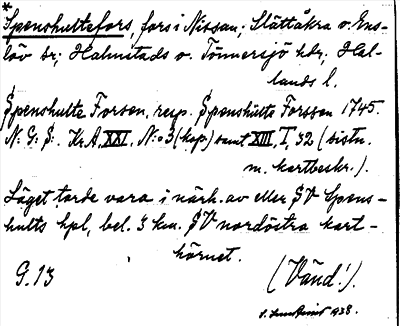 *
Spenshultefors, fors i Nissan; Slättåkra o. Ens-
löv sr; Halmstads o. Tönnersjö hdr, Hal-
lands l.
Spenshulte Forsen, resp. Spenshulte Forssen 1745.
N: G: S: Kr.A. XXI, N:o 3 (kop.) samt XIII, I, 32 (bistn.
m. kartbeskr.).
Läget torde vara i närh. av eller SV Spens-
hults hpl, bel. 3 km. SV nordöstra kart-
hörnet.
G.13
(Vänd!).
1938.